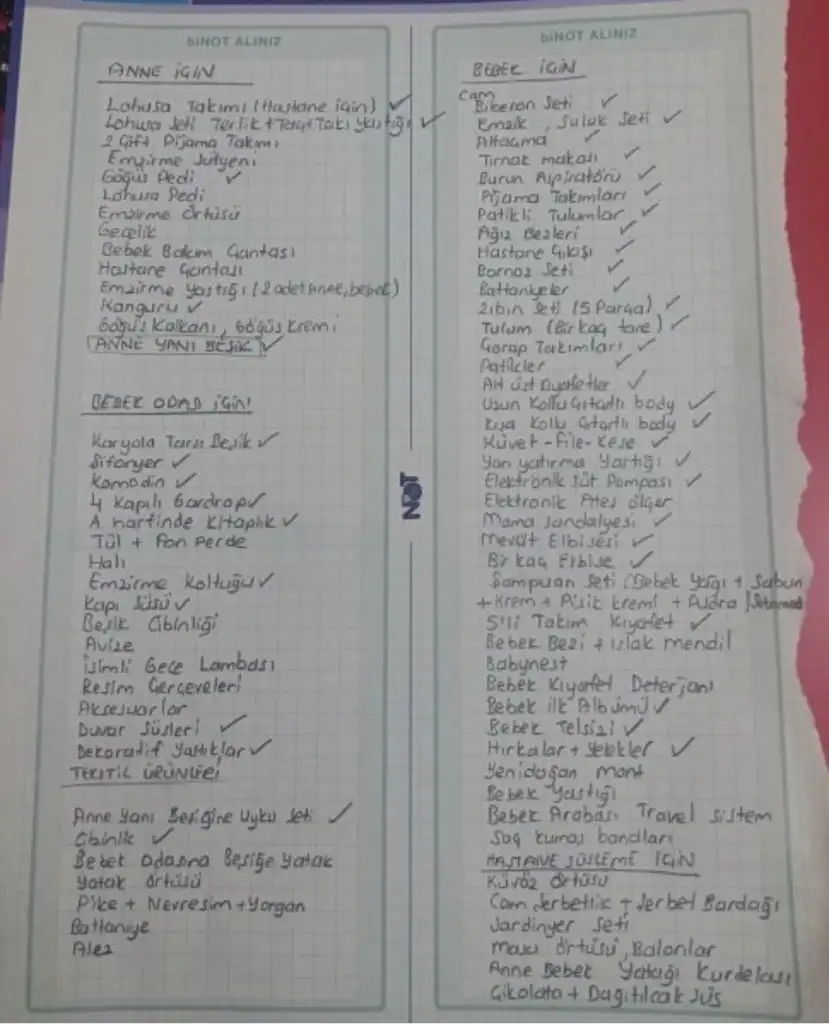 biNOT ALINIZ
ANNE iÇiN
Lohusa Takımı (Hastane için) ✓
Lohusa Seti Terlik + Terlik Takı Yastığı ✓
2 Çift Pijama Takımı
Emzirme Sütyeni
Göğüs Pedi ✓
Lohusa Pedi
Emzirme Örtüsü
Gecelik
Bebek Bakım Çantası
Hastane Çantası
Emzirme Yastığı (2 adet Anne, bebek)
Kanguru ✓
Göğüs Kalkanı, Göğüs Kremi
ANNE YANI BEŞİK ✓
BEBEK ODASI İÇİN
Karyola Tarzı Beşik ✓
Şifonyer ✓
Komodin ✓
4 Kapılı Gardrop ✓
A harfinde Kitaplık ✓
Tül + Fon Perde
Halı
Emzirme Koltuğu ✓
Kapı Süsü ✓
Beşik Cibinliği
Avize
İsimli Gece Lambası
Resim Çerçeveleri
Aksesuarlar
Duvar Süsleri ✓
Dekoratif Yastıklar ✓
TEKSTİL ÜRÜNLERİ
Anne Yanı Beşiğine Uyku Seti ✓
Cibinlik ✓
Bebek odasına Beşiğe Yatak
Yatak örtüsü
Pike + Nevresim + Yorgan
Battaniye
Alez
NOT
biNOT ALINIZ
BEBEK İÇİN
Cam
Biberon Seti ✓
Emzik, Suluk Seti ✓
Alt açma ✓
Tırnak makası ✓
Burun Aspiratörü ✓
Pijama Takımları ✓
Patikli Tulumlar ✓
Ağız Bezleri ✓
Hastane Çıkışı ✓
Bornoz Seti ✓
Battaniyeler ✓
Zıbın Seti (5 Parça) ✓
Tulum (Bir kaç tane) ✓
Çorap Takımları ✓
Patikler ✓
Alt üst Kıyafetler ✓
Uzun Kollu Çıtçıtlı body ✓
Kısa Kollu Çıtçıtlı body ✓
Küvet - File - Kese ✓
Yan yatırma Yastığı ✓
Elektronik Süt Pompası ✓
Elektronik Ateş ölçer
Mama Sandalyesi ✓
Mevlüt Elbisesi ✓
Bir kaç Elbise ✓
Şampuan Seti (Bebek Yağı + Sabun
+ Krem + Pişik kremi + Pudra) Sebamed
5'li Takım Kıyafet ✓
Bebek Bezi + ıslak mendil
Babynest
Bebek Kıyafet Deterjanı
Bebek ilk Albümü ✓
Bebek Telsizi ✓
Hırkalar + Yelekler ✓
Yenidoğan Mont
Bebek Yastığı
Bebek Arabası Travel sistem
Saç kumaş bandları
HASTANE SÜSLEME İÇİN
Küvöz Örtüsü
Cam Şerbetlik + Şerbet Bardağı
Jardinyer Seti
Masa örtüsü, Balonlar
Anne Bebek Yatağı Kurdelası
Çikolata + Dağıtılcak Süs